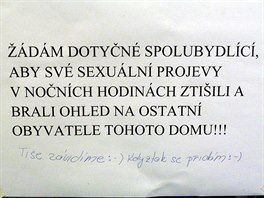 ŽÁDÁM DOTYČNÉ SPOLUBYDLÍCÍ,
ABY SVÉ SEXUÁLNÍ PROJEVY
V NOČNÍCH HODINÁCH ZTIŠILI A
BRALI OHLED NA OSTATNÍ
OBYVATELE TOHOTO DOMU!!!
Tiše závidíme :-) se přidám :-)